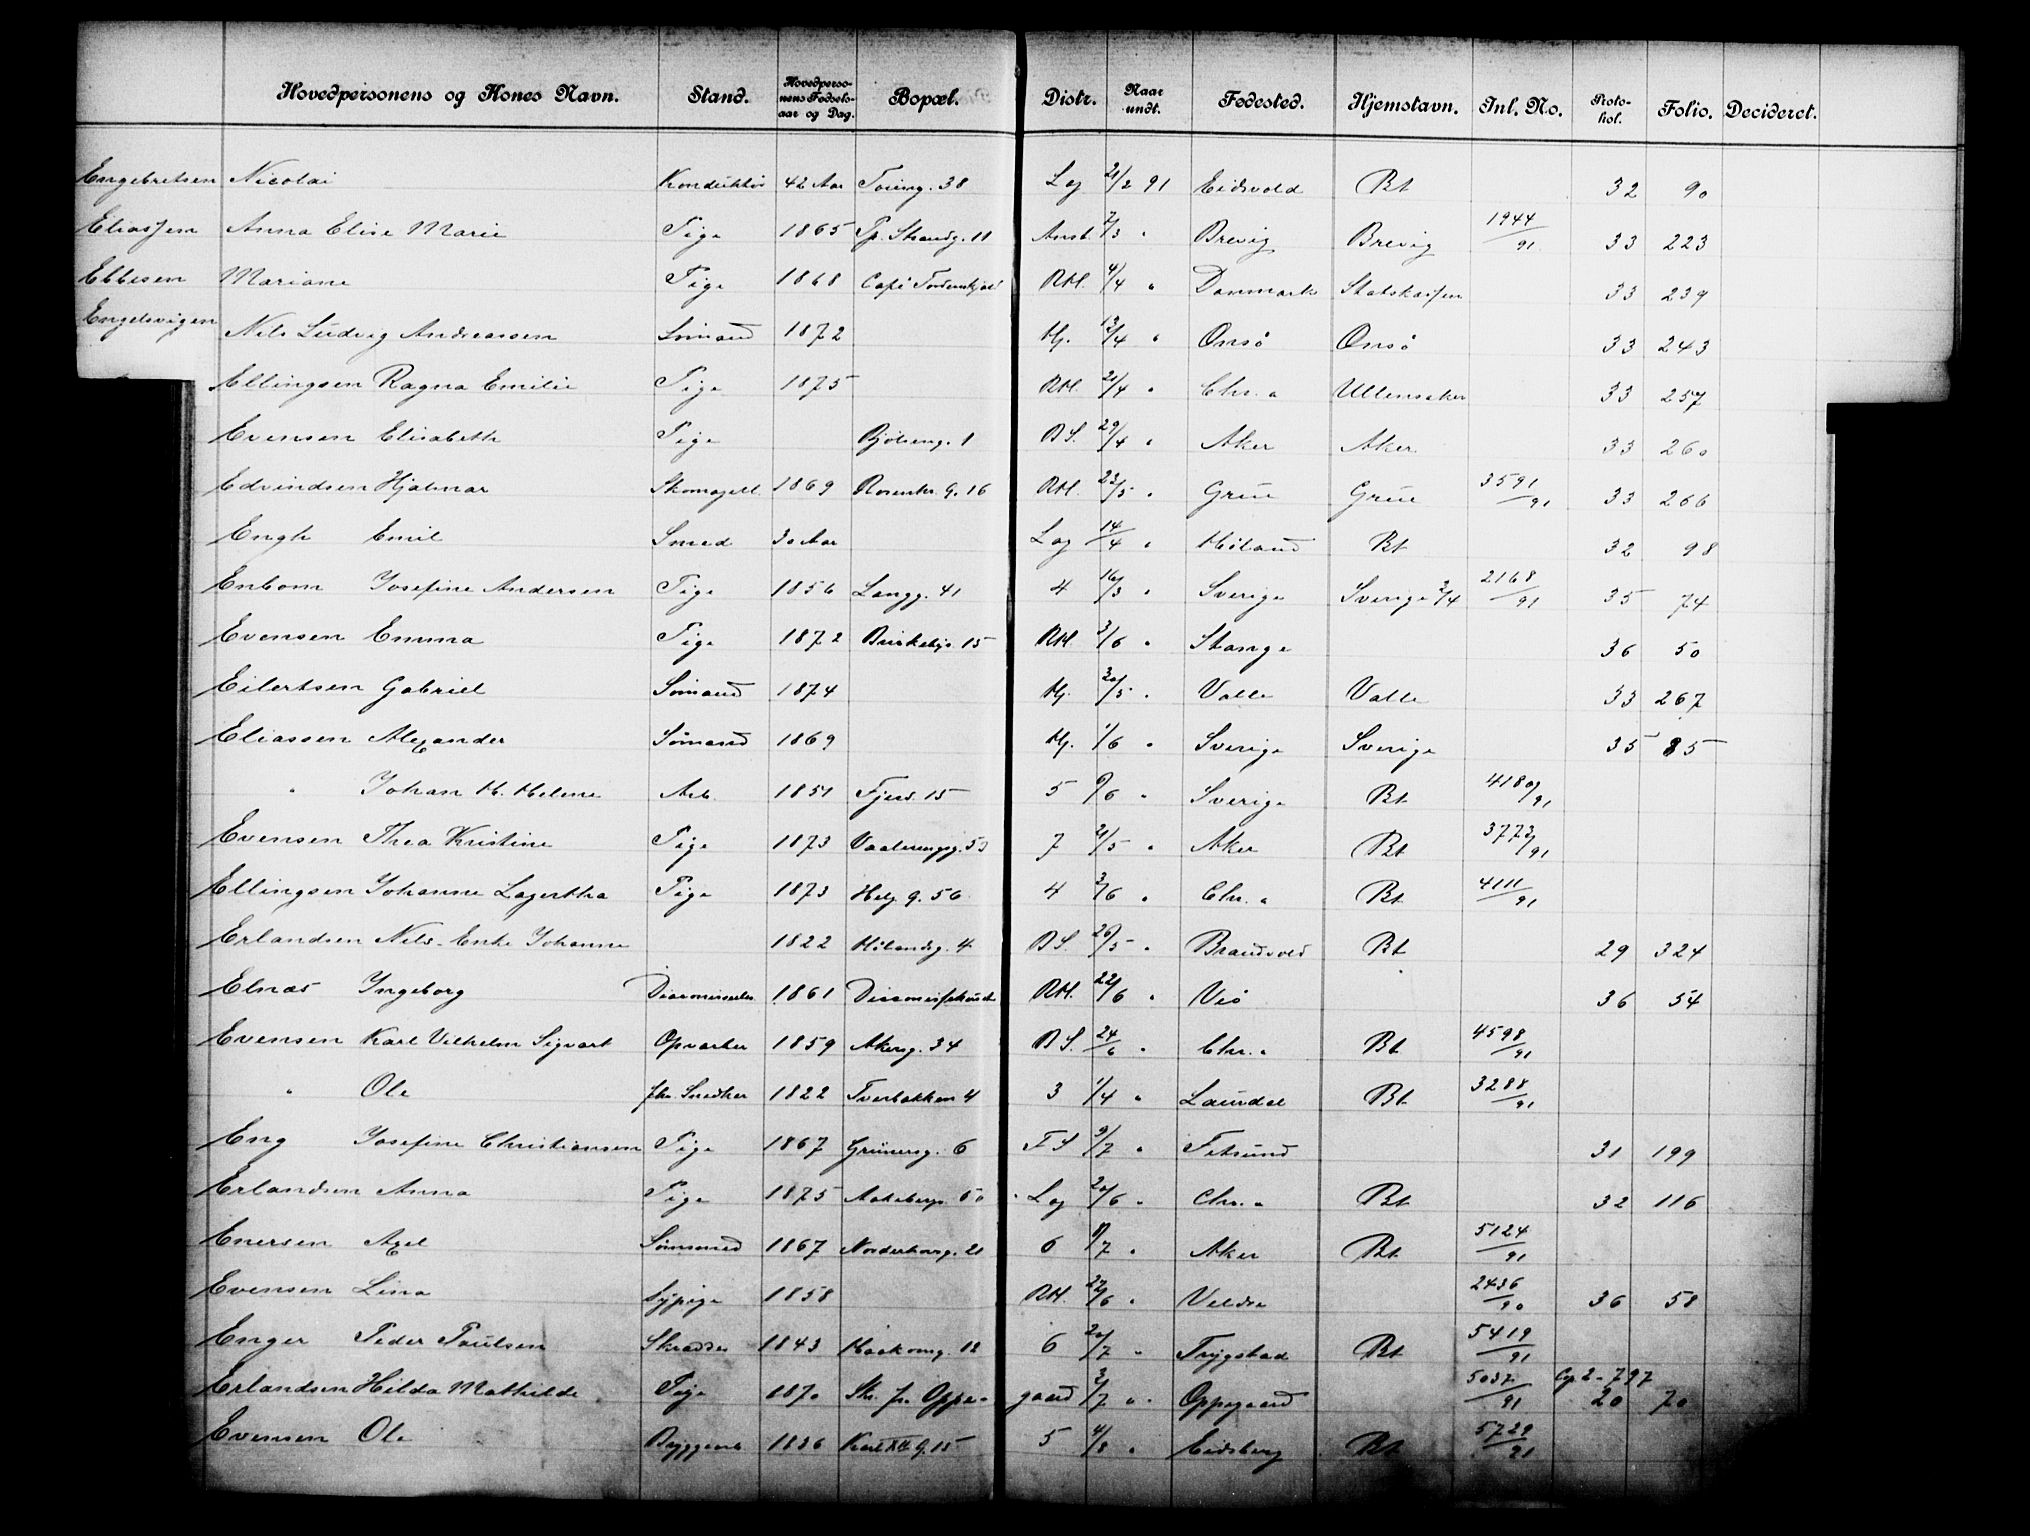 Hovedpersonens og Kones Navn. Stand. Hovedpersonens Fødselsaar og Dag. Bopæl. Distr. Naar undt. Fødested. Hjemstavn. Jnl. No. Protokol. Folio. Decideret.
Engebretsen Nicolai Konduktør 42 Aar Toieng. 38 Log 21/2 91 Eidsvold Bt 32 90
Eliassen Anna Elise Marie Pige 1865 Tp. Strandg. 11 Anst. 7/3 " Brevig Brevig 1944/91 33 223
Ebbesen Mariane Pige 1868 Café Tordenskjold RM. 4/4 " Danmark Statskassen 33 239
Engelsvigen Nils Ludvig Andreassen Sömand 1872 Hj. 13/4 " Onsö Onsö 33 243
Ellingsen Ragna Emilie Pige 1875 RM. 21/4 " Chr.a Ullensaker 33 257
Evensen Elisabeth Pige Bjölseng. 1 BS. 29/4 " Aker Aker 33 260
Edvindsen Hjalmar Skomagerl. 1869 Rosenkr. g. 16 RM. 23/5 " Grue Grue 3591/91 33 266
Engh Emil Smed 30 Aar Log 14/4 " Höland Bt 32 98
Enbom Josefine Andersen Pige 1856 Langg. 41 4 16/3 " Sverige Sverige 2/4 2168/91 35 74
Evensen Emma Pige 1872 Birkebg. 15 RM. 3/6 " Stange 36 50
Eilertsen Gabriel Sömand 1874 Hj. 30/5 " Valle Valle 33 267
Eliassen Alexander Sömand 1869 Hj. 1/6 " Sverige Sverige 35 85
" Johan H. Helene Arb. 1851 Fjerd. 15 5 9/6 " Sverige Bt 4180/91
Evensen Thea Kristine Pige 1873 Vaalerengg. 53 7 21/5 " Aker Bt 3773/91
Ellingsen Johanne Lagertha Pige 1873 Helg. g. 56 4 3/6 " Chr.a Bt 4111/91
Erlandsen Nils. Enke Johanne 1822 Hölandsg. 4 BS. 26/5 " Brandvold Bt 29 324
Elnæs Ingeborg Diakonisse 1861 RM. 22/6 " Veö 36 54
Evensen Karl Vilhelm Sigvart Opvarter 1859 Akersg. 34 BS. 24/6 " Chr.a Bt 4598/91
" Ole fhv. Snedker 1822 Tverbakken 4 3 1/4 " Laurdal Bt 3288/91
Eng Josefine Christiansen Pige 1867 Grünersg. 6 FS 9/7 " Fetsund 31 199
Erlandsen Anna Pige 1875 Aakebergv. 50 Log 20/6 " Chr.a Bt 32 116
Enersen Axel Sömand 1867 Norderhovsg. 21 6 8/7 " Aker Bt 5124/91
Evensen Lina Sypige 1858 RM. 27/6 " Veldre 2436/90 36 58
Enger Peder Paulsen Skrædder 1843 Haakonsg. 12 6 20/7 " Trygstad Bt 5419/91
Erlandsen Hilda Mathilde Pige 1870 St. pr. Oppegaard 2/7 " Oppegaard 5037/91 Cp. 2-797 20 70
Evensen Ole Byggearb 1836 Karl XII g. 15 5 4/8 " Eidsberg Bt 5729/91